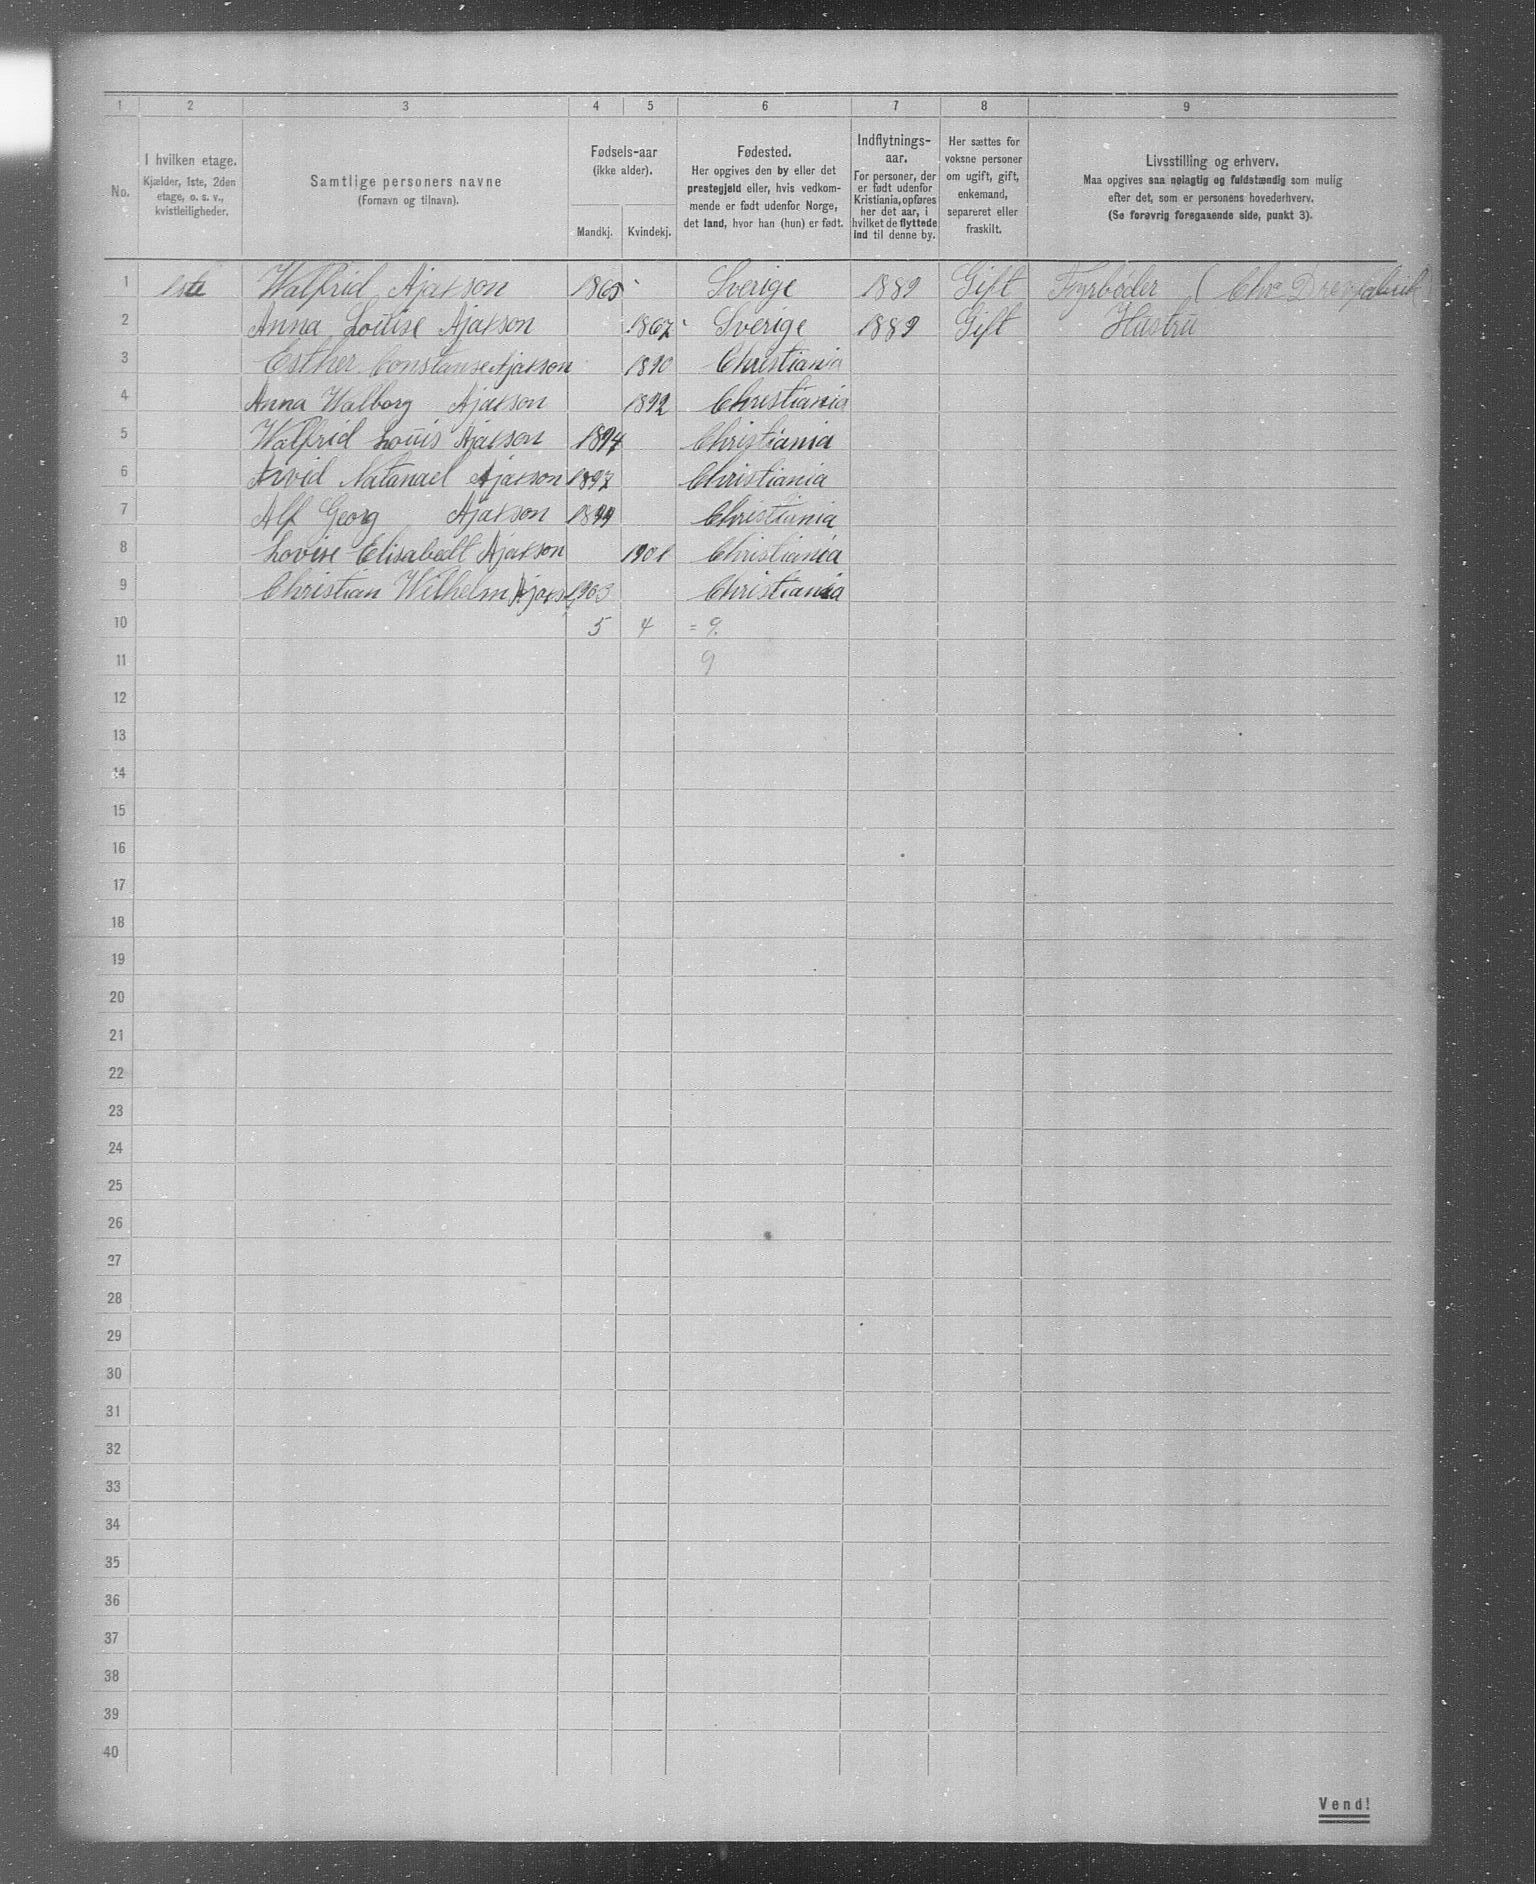 1 2 3 4 5 6 7 8 9
No.
I hvilken etage.
Kjælder, 1ste, 2den
etage, o. s. v.,
kvistleiligheder.
Samtlige personers navne
(Fornavn og tilnavn).
Fødsels-aar
(ikke alder).
Mandkj. Kvindekj.
Fødested.
Her opgives den by eller det
prestegjeld eller, hvis vedkom-
mende er født udenfor Norge,
det land, hvor han (hun) er født.
Indflytnings-
aar.
For personer, der
er født udenfor
Kristiania, opføres
her det aar, i
hvilket de flyttede
ind til denne by.
Her sættes for
voksne personer
om ugift, gift,
enkemand,
separeret eller
fraskilt.
Livsstilling og erhverv.
Maa opgives saa nøiagtig og fuldstændig som mulig
efter det, som er personens hovederhverv.
(Se forøvrig foregaaende side, punkt 3).
1 1ste Walfrid Ajaxson 1865 Sverige 1889 Gift Fyrbøder (Chra
2 Anna Louise Ajaxson 1867 Sverige 1889 Gift Hustru
3 Esther Constanse Ajaxson 1890 Christiania
4 Anna Walborg Ajaxson 1892 Christiania
5 Walfrid Louis Ajaxson 1894 Christiania
6 Arvid Natanael Ajaxson 1897 Christiania
7 Alf Georg Ajaxson 1899 Christiania
8 Lovise Elisabedt Ajaxson 1901 Christiania
9 Christian Wilhelm 1903 Christiania
10 5 4 = 9.
11 9
12
13
14
15
16
17
18
19
20
21
22
23
24
25
26
27
28
29
30
31
32
33
34
35
36
37
38
39
40
Vend!